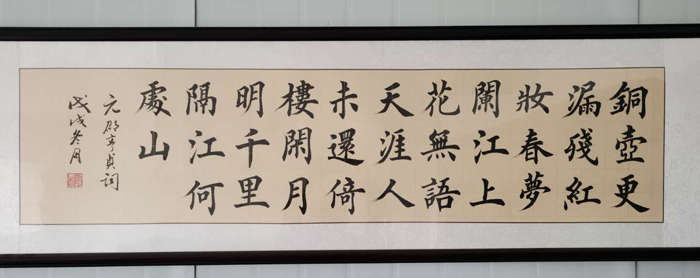 銅壺更
漏殘紅
妝春夢
闌江上
花無語
天涯人
未還倚
樓閑月
明千里
隔江何
處山
元邵亨貞詞
戊戌冬月